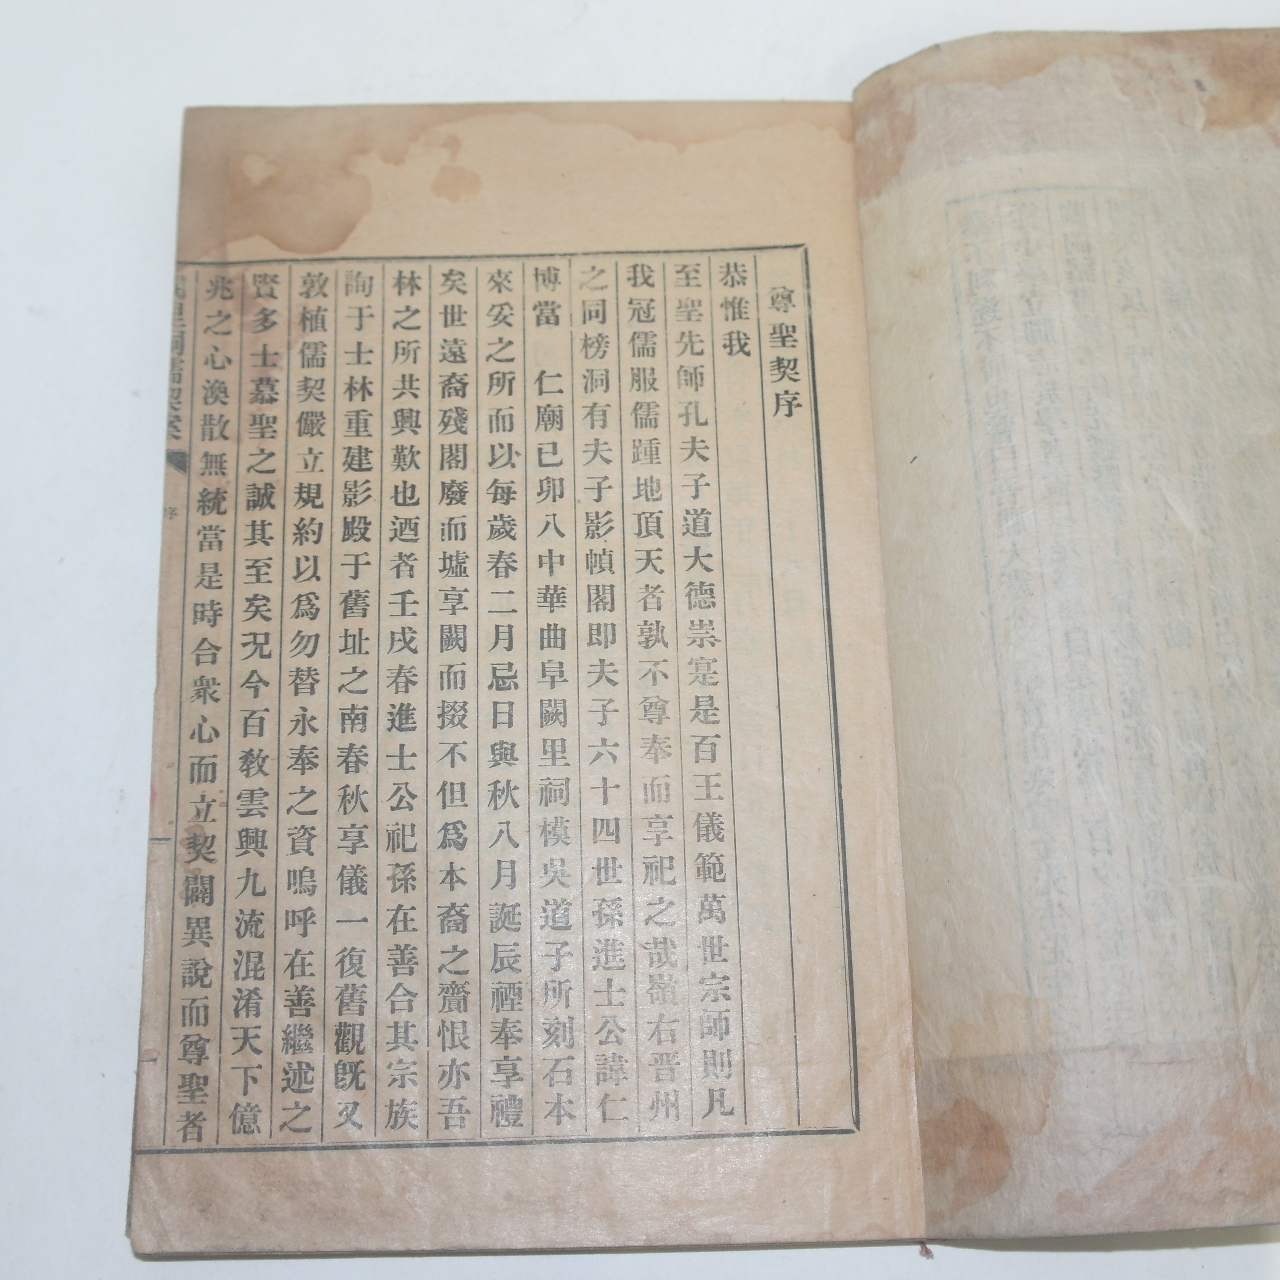 尊聖契序
恭惟我
至聖先師孔夫子道大德崇寔是百王儀範萬世宗師則凡
我冠儒服儒踵地頂天者孰不尊奉而享祀之哉嶺右晋州
之同榜洞有夫子影幀閣即夫子六十四世孫進士公諱仁
博當 仁廟已卯八中華曲阜闕里祠模吳道子所刻石本
來妥之所而以每歲春二月忌日與秋八月誕辰禋奉享禮
矣世遠裔殘閣廢而墟享闕而掇不但爲本裔之齎恨亦吾
林之所共興歎也迺者壬戌春進士公祀孫在善合其宗族
詢于士林重建影殿于舊址之南春秋享儀一復舊觀旣又
敦植儒契儼立規約以爲勿替永奉之資嗚呼在善繼述之
賢多士慕聖之誠其至矣况今百敎雲興九流混淆天下億
兆之心渙散無統當是時合衆心而立契闢異說而尊聖者
里祠儒契案
序